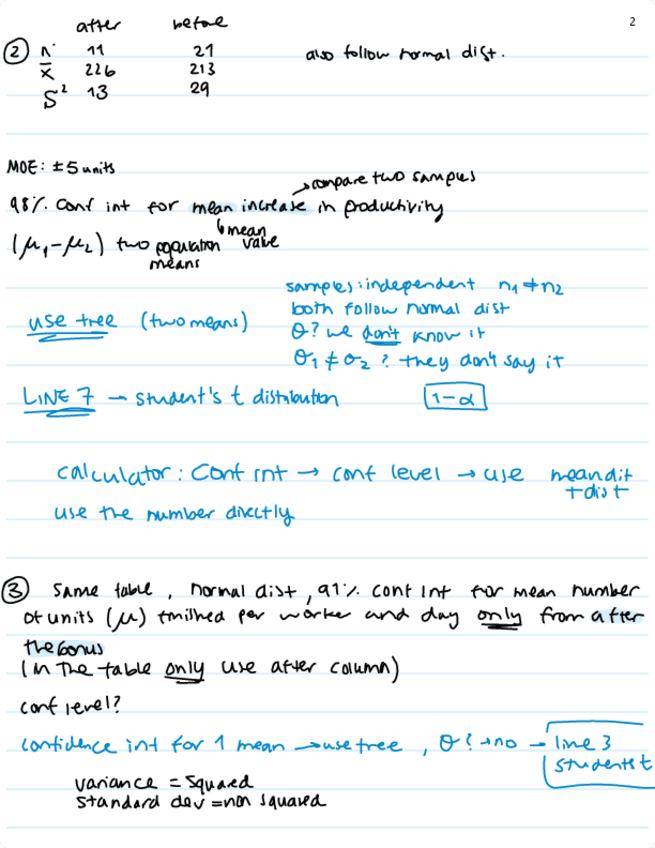 2
after before
② n 11 21 also follow normal dist.
x̄ 226 213
S² 13 29
MOE: ±5 units
→compare two samples
98%. conf int for mean increase in productivity
↳mean value
(μ₁-μ₂) two population means
samples: independent n₁≠n₂
both follow normal dist
use tree (two means)
θ? we don't know it
σ₁≠σ₂? they don't say it
LINE 7 → student's t distribution 1-α
calculator: Conf int → conf level → use mean dif
t dist
use the number directly
③ Same table, normal dist, 91%. conf int for mean number
of units (μ) finished per worker and day only from after
the bonus
(in the table only use after column)
conf level?
confidence int for 1 mean → use tree, θ? → no → line 3
students t
variance = squared
standard dev = non squared